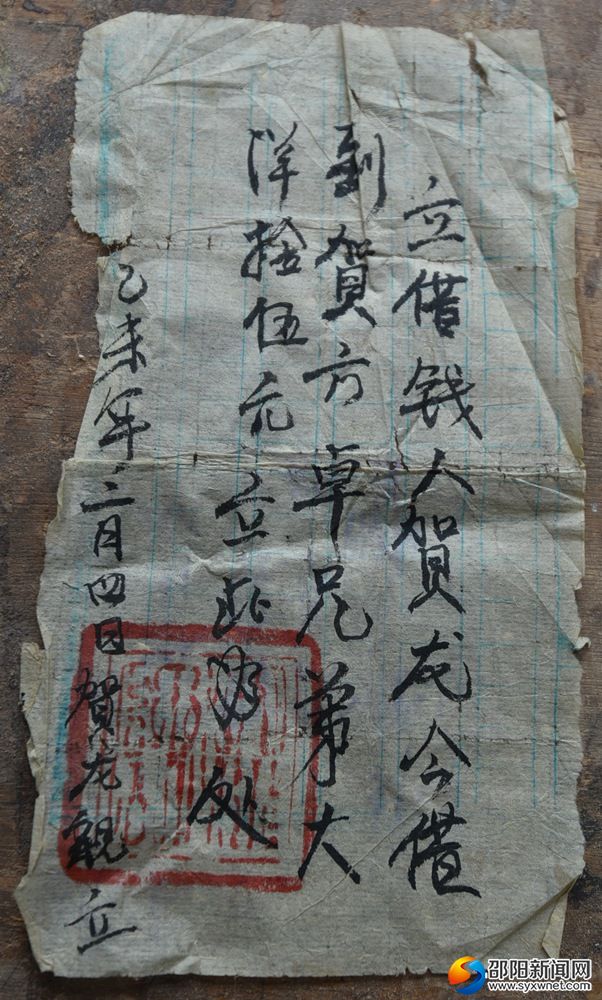 立借钱人贺龙今借
到贺方卓兄弟大
洋拾伍元立此为处
乙未年三月四日賀龙親立
邵阳新闻网
www.syxwnet.com